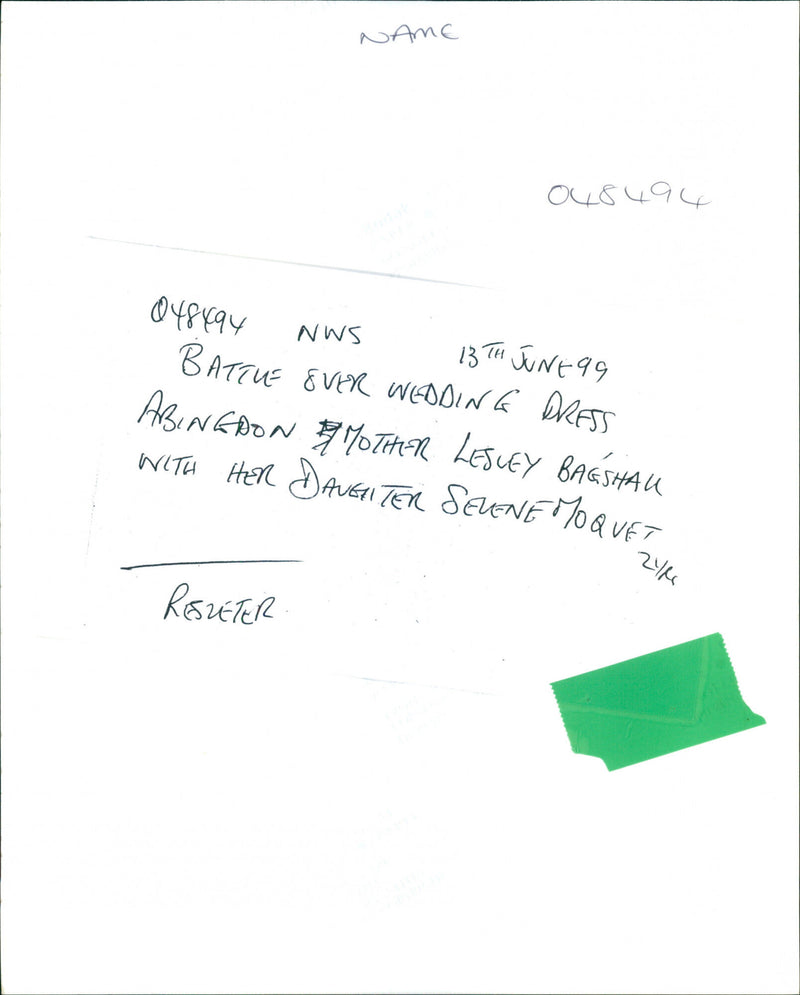 NAME
048494
048494 NWS 13TH JUNE 99
BATTLE OVER WEDDING DRESS
ABINGDON MOTHER LESLEY BAGSHAW
WITH HER DAUGHTER SELENE MOQUET